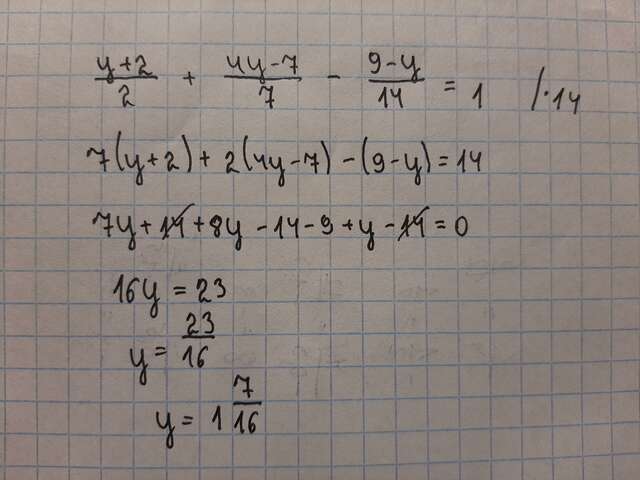 (y+2)/2 + (4y-7)/7 - (9-y)/14 = 1 /·14
7(y+2)+ 2(4y-7) -(9-y)=14
7y+14+8y-14-9+y-14=0
16y=23
y= 23/16
y= 1 7/16